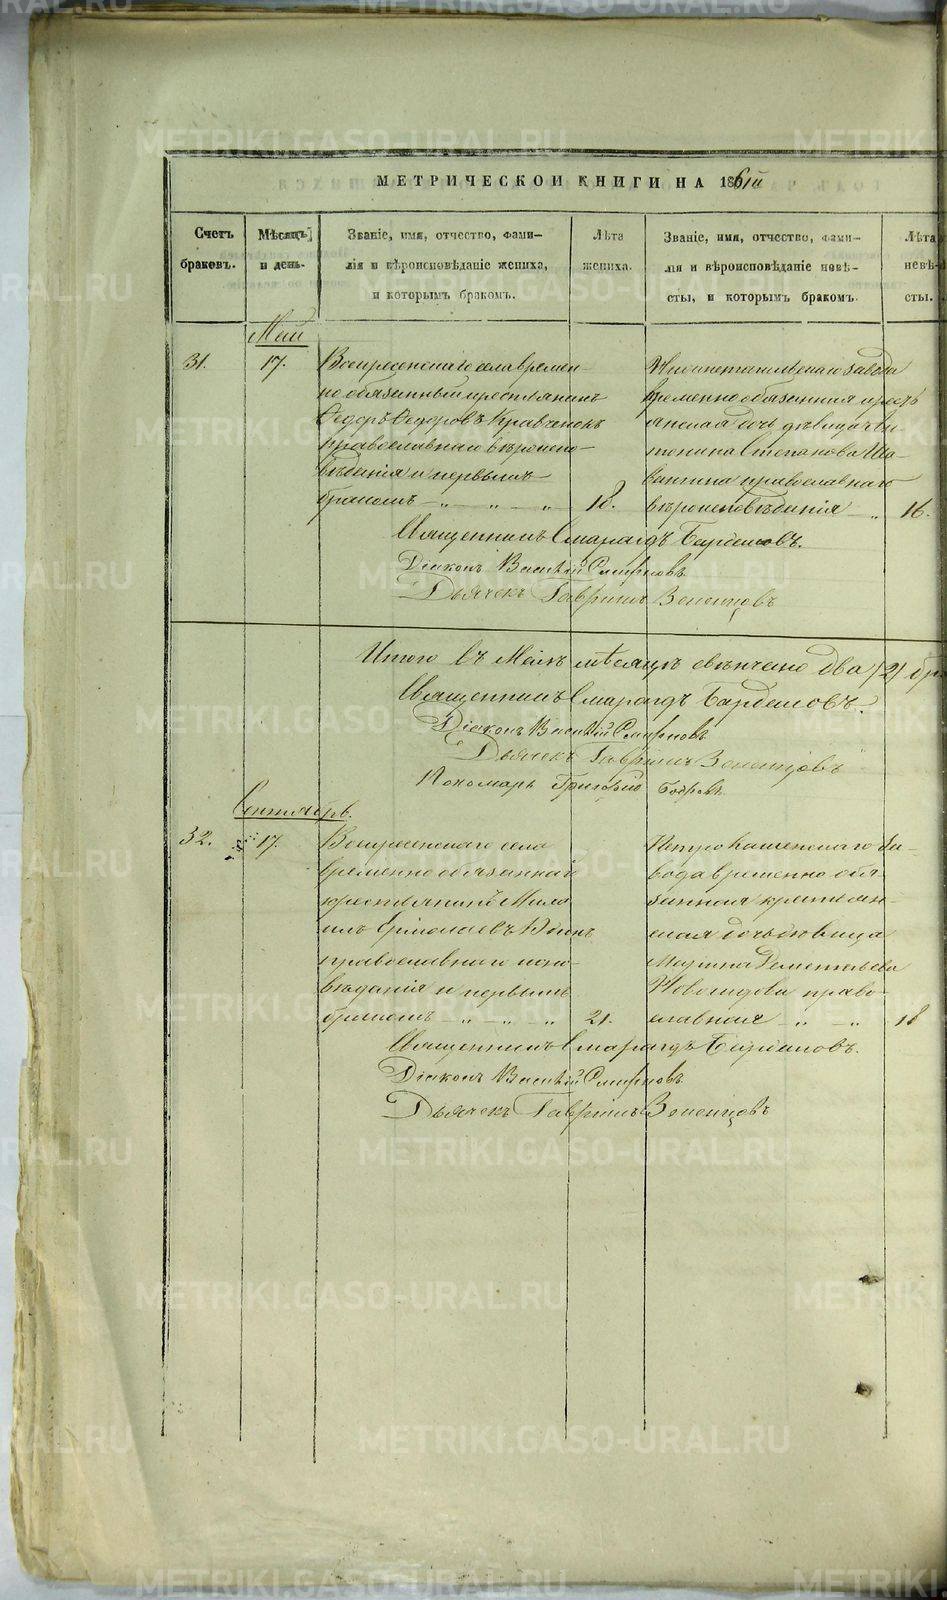 МЕТРИЧЕСКОЙ КНИГИ НА 1861й
Счетъ браковъ.
Мѣсяцъ и день.
Званіе, имя, отчество, фами-
лія и вѣроисповѣданіе жениха,
и которымъ бракомъ.
Лѣта жениха.
Званіе, имя, отчество, фами-
лія и вѣроисповѣданіе невѣ-
сты, и которымъ бракомъ.
Лѣта невѣ-
сты.
Май
31.
17.
Воскресенскаго села времен-
но обязанный крестьянинъ
Ѳедоръ Ѳедоровъ
православнаго вѣроиспо-
вѣданія и первымъ
бракомъ — „ — „ — „
18.
завода
временно обязанная кресть
янская дочь дѣвица Ан
тонина Степанова Ша-
православнаго
вѣроисповѣданія — „
16.
Священникъ Смарагдъ
Діаконъ Василій Смирновъ
Дьячекъ Гавріилъ
Итого въ Маѣ мѣсяцѣ вѣнчано два /2/ бр
Священникъ Смарагдъ
Діаконъ Василій Смирновъ
Дьячекъ Гавріилъ
Пономарь Григорій
Сентябрь.
32.
17.
Воскресенскаго села
временно обязанный
крестьянинъ Миха
илъ Ермолаевъ
православнаго испо-
вѣданія и первымъ
бракомъ — „ — „ — „
21.
Петрокаменскаго за-
вода временно обя
занная крестьян-
ская дочь дѣвица
Марина Дементьева
право-
славная — „ — „
18
Священникъ Смарагдъ
Діаконъ Василій Смирновъ
Дьячекъ Гавріилъ
METRIKI.GASO-URAL.RU